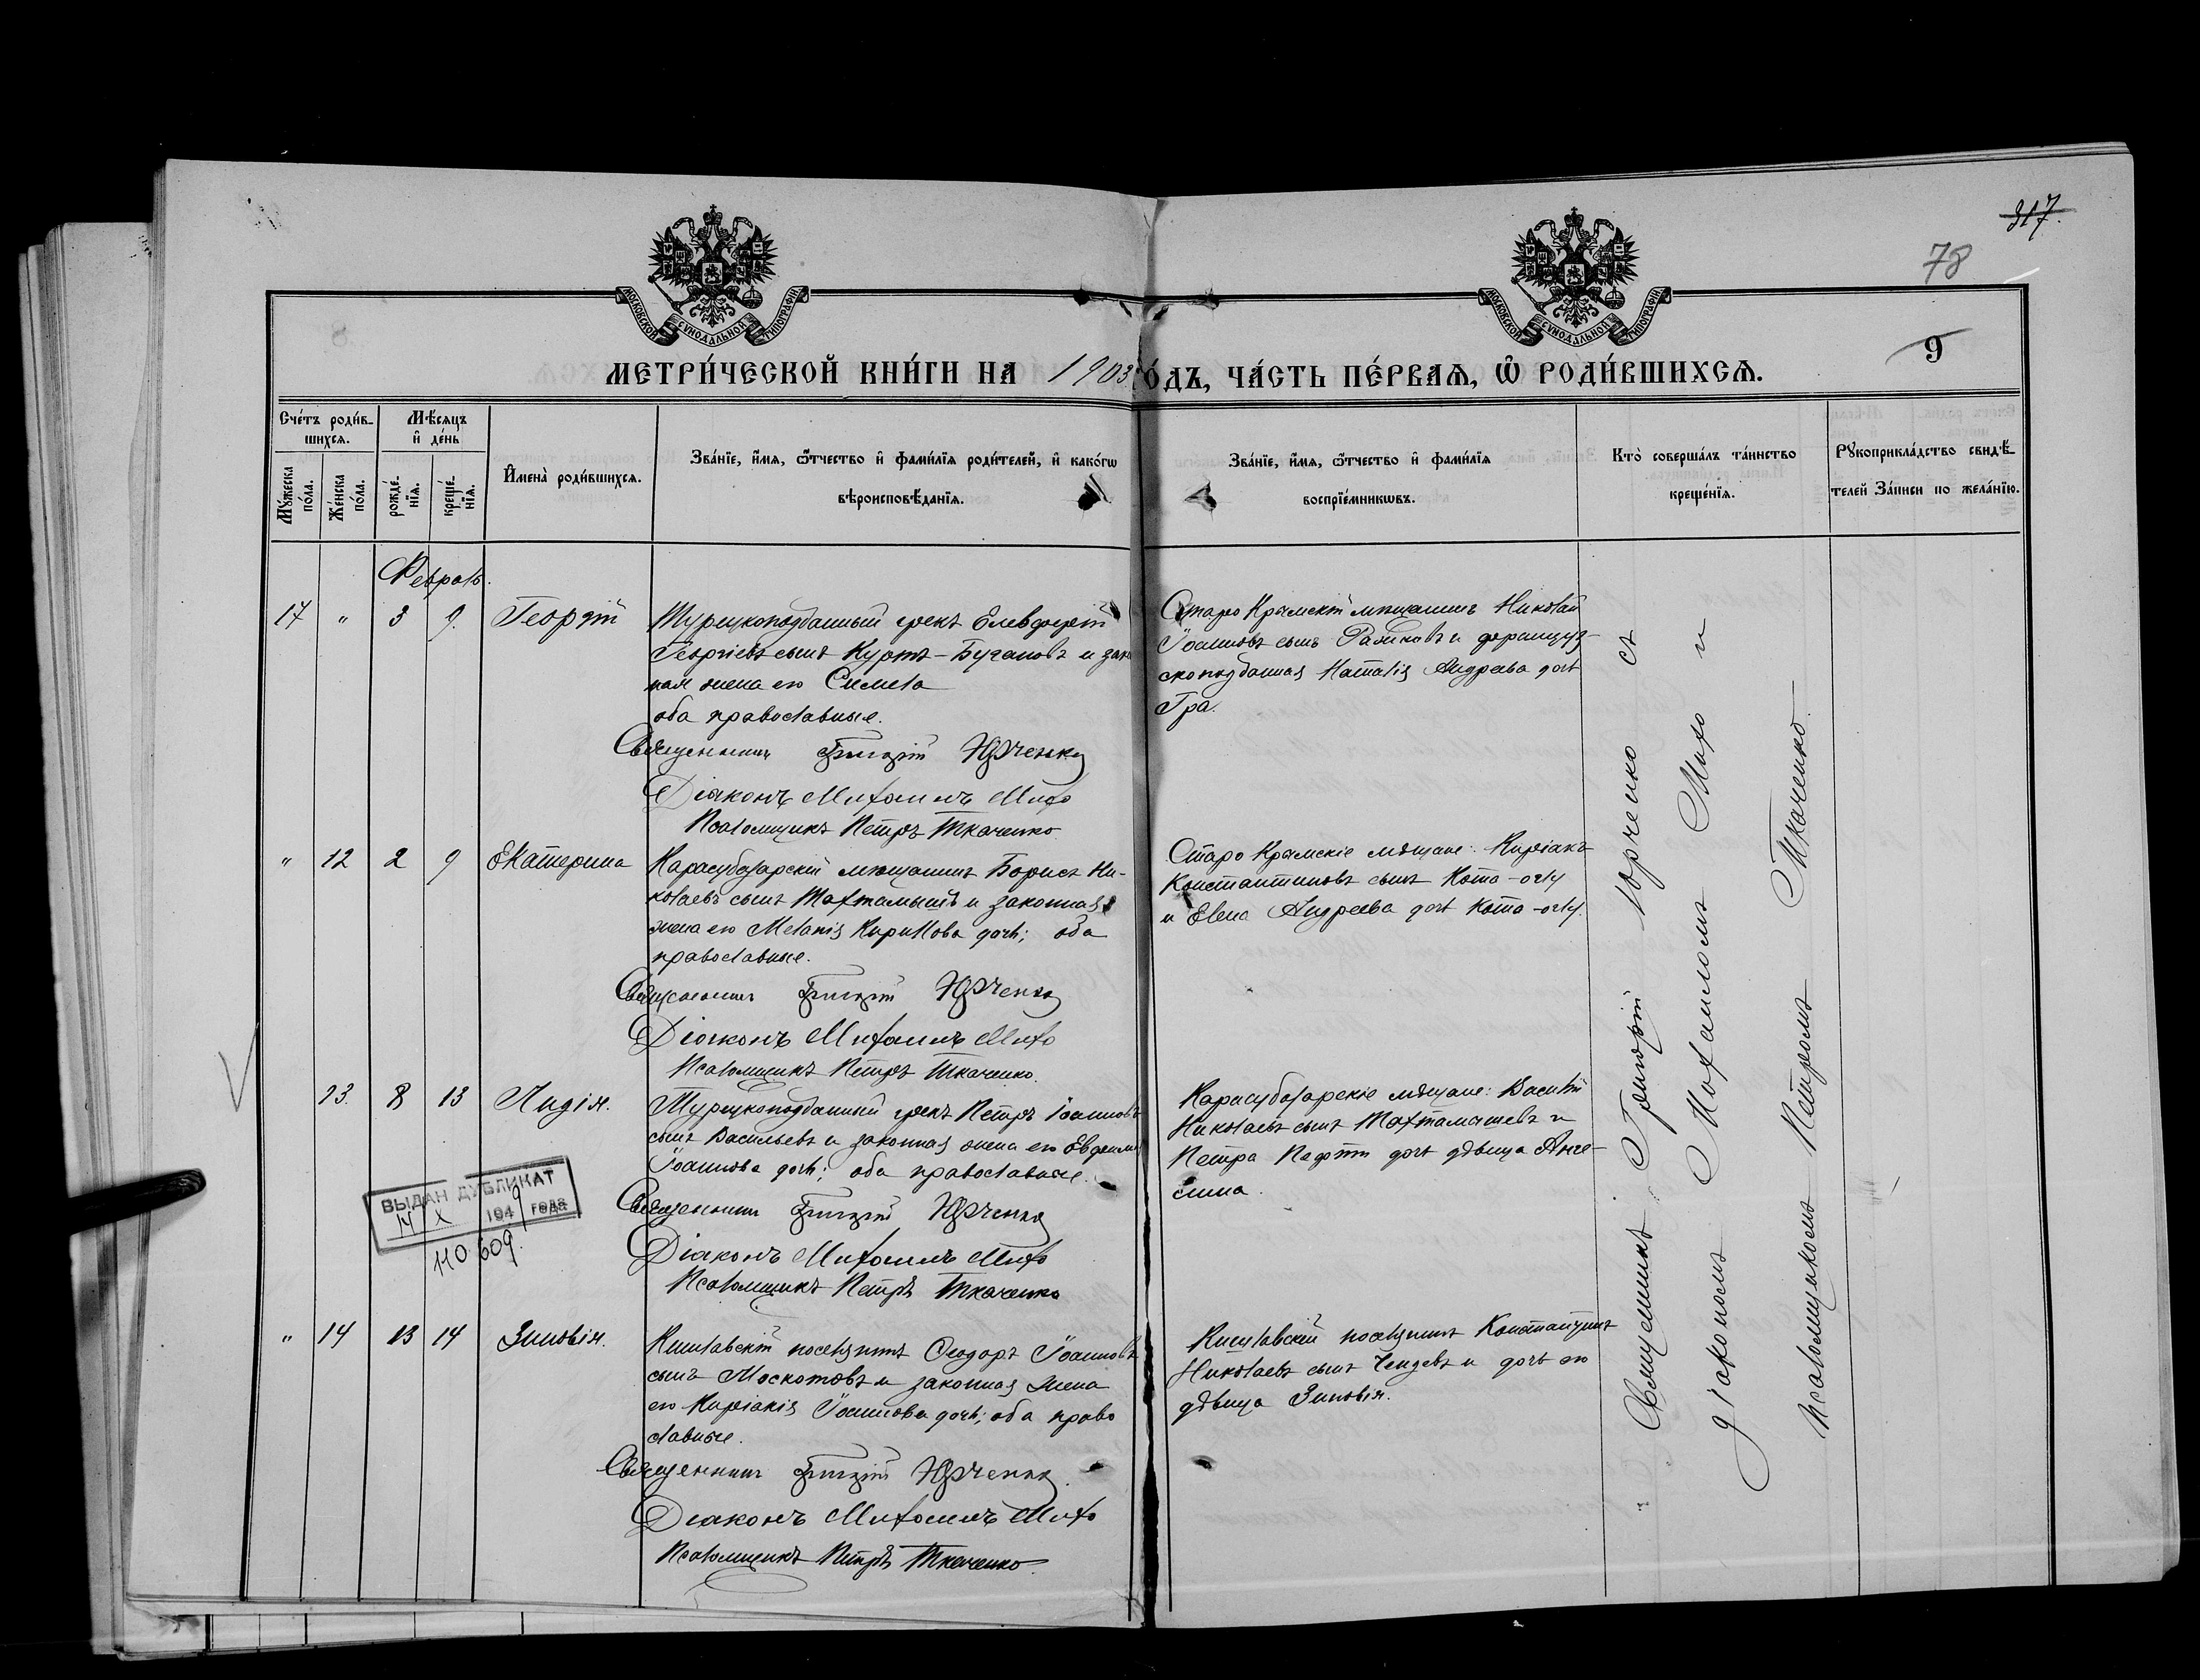 317.
78
9
МОСКОВСКОЙ СѴНОДАЛЬНОЙ ТИПОГРАФІИ
МОСКОВСКОЙ СѴНОДАЛЬНОЙ ТИПОГРАФІИ
МЕТРИ́ЧЕСКОЙ КНИ́ГИ НА 1903 ГО́ДЪ, ЧА́СТЬ ПЕ́РВАѦ, Ѽ РОДИ́ВШИХСѦ.
Сче́тъ роди́в-
шихсѧ.
Мꙋ́жеска по́ла.
Же́нска по́ла.
Мѣ́сѧцъ
и҆ де́нь
рожде́-
нїѧ.
креще́-
нїѧ.
И҆мена̀ роди́вшихсѧ.
Зва́нїе, и҆́мѧ, ѻ҆́тчество и҆ фами́лїѧ роди́телей, и҆ како́гѡ
вѣроисповѣ́данїѧ.
Зва́нїе, и҆́мѧ, ѻ҆́тчество и҆ фами́лїѧ
воспрїе́мникѡвъ.
Кто̀ соверша́лъ та́инство
креще́нїѧ.
Рꙋкоприкла́дство свидѣ́-
телей За́писи по жела́нїю.
Февраль.
17 " 3 9. Георгій
Турецкоподданный грекъ Елевферій
Георгіевъ сынъ Куртъ-Бугановъ и закон
ная жена его Симела
оба православные.
Священникъ Григорій Юрченко
Діаконъ Михаилъ Михо
Псаломщикъ Петръ Ткаченко
Старо Крымскій мѣщанинъ Николай
Іоанновъ сынъ и француз-
скоподданная Наталія Андреева дочь
Гра.
" 12 2 9 Екатерина
Карасубазарскій мѣщанинъ Борисъ Ни-
колаевъ сынъ Тахтамышъ и законная
жена его Меланія Кириллова дочь; оба
православные.
Священникъ Григорій Юрченко
Діаконъ Михаилъ Михо
Псаломщикъ Петръ Ткаченко.
Старо Крымскіе мѣщане: Киріакъ
Константиновъ сынъ Кота-оглу
и Елена Андреева дочь Кота-оглу.
13. 8 13 Лидія.
Турецкоподданный грекъ Петръ Іоанновъ
сынъ Васильевъ и законная жена его Евфимія
Іоаннова дочь; оба православные.
Священникъ Григорій Юрченко
Діаконъ Михаилъ Михо
Псаломщикъ Петръ Ткаченко
Карасубазарскіе мѣщане: Василій
Николаевъ сынъ Тахтамышевъ и
Петра дочь дѣвица Анге-
лина.
ВЫДАН ДУБЛИКАТ
14 X 1949 года
110 609.
" 14 13 14 Зиновія.
Кишлавскій поселянинъ Ѳеодоръ Іоанновъ
сынъ Москотовъ и законная жена
его Киріакія Іоаннова дочь; оба право
славные.
Священникъ Григорій Юрченко.
Діаконъ Михаилъ Михо
Псаломщикъ Петръ Ткаченко.
Кишлавскій поселянинъ Константинъ
Николаевъ сынъ и дочь его
дѣвица Зиновія.
Священникъ Григорій Юрченко съ
діакономъ Михаиломъ Михо и
псаломщикомъ Петромъ Ткаченко.